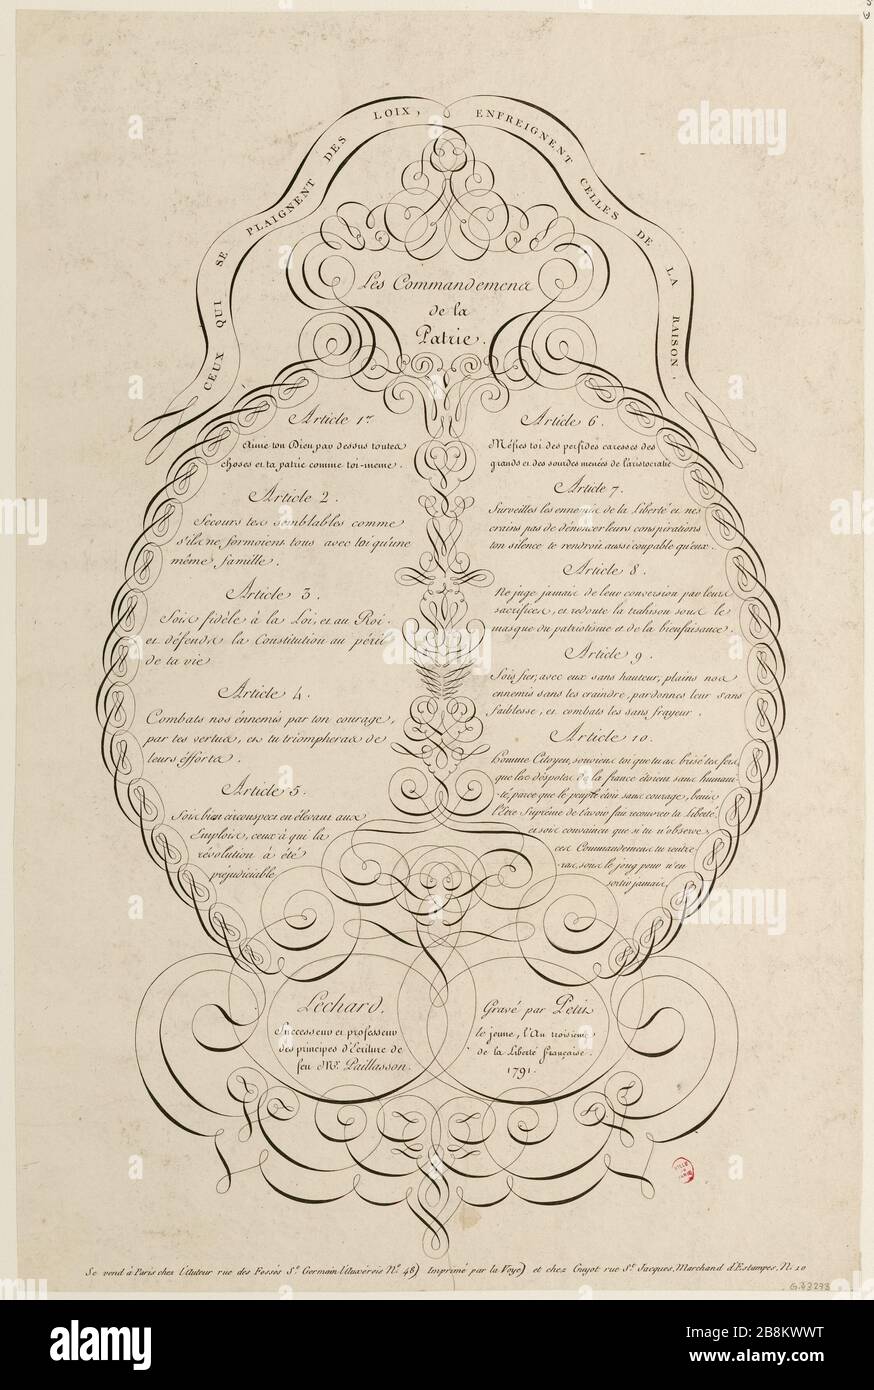 CEUX QUI SE PLAIGNENT DES LOIX, ENFREIGNENT CELLES DE LA RAISON.
Les Commandemens
de la
Patrie.
Article 1er
Aime ton Dieu par dessus toutes
choses et ta patrie comme toi-meme.
Article 2.
Secours tes semblables comme
s'ils ne formoient tous avec toi qu'une
même famille.
Article 3.
Sois fidèle à la Loi, et au Roi.
et défends la Constitution au péril
de ta vie
Article 4.
Combats nos énnemis par ton courage,
par tes vertus, et tu triompheras de
leurs éfforts.
Article 5.
Sois bien circonspect en élevant aux
Emplois, ceux à qui la
révolution à été
prejudiciable.
Article 6.
Méfies toi des perfides caresses des
grands et des sourdes menées de l'aristocratie
Article 7.
Surveilles les ennemis de la Liberté et nes
crains pas de dénoncer leurs conspirations
ton silence te rendroit aussi coupable qu'eux.
Article 8.
Ne juge jamais de leur conversion par leurs
sacrifices, et redoute la trahison sous le
masque du patriotisme et de la bienfaisance.
Article 9.
Sois fier, avec eux sans hauteur, plains nos
ennemis sans les craindre, pardonnes leur sans
faiblesse, et combats les sans frayeur.
Article 10.
homme Citoyen, souviens toi que tu as brisé tes fers
que les déspotes de la france étoient sans humani-
-té, parce que le peuple étoit sans courage, benis
l'Etre Suprême de t'avoir fait recouvrer ta Liberté.
et sois convaincu que si tu n'observe
ces Commandemens tu rentre
ras, sous le joug pour n'en
sortir jamais.
Lechard,
Successeur et professeur
des principes d'Ecriture de
feu Mr. Paillasson.
Gravé par Petit
le jeune, l'An troisieme
de la Liberté française.
1791.
Se vend à Paris chez l'Auteur rue des Fossés St. Germain l'Auxérois No. 48) Imprimé par la Voye) et chez Guyot rue St. Jacques, Marchand d'Estampes, N. 10
G.33293
alamy
Image ID: 2B8KWWT
www.alamy.com